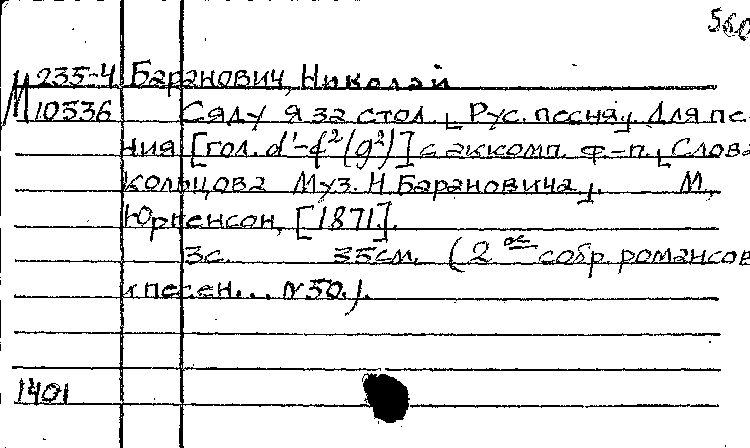 560
М 235-4 Баранович, Николай
10536 Сяду я за стол. [Рус. песня]. Для пе-
ния [гол. d¹-f²(g²)] с аккомп. ф-п. [Слова
Кольцова Муз. Н. Барановича]. М.,
Юргенсон, [1871].
3с. 35см. (2ое собр. романсов
и песен... №50.).
1401